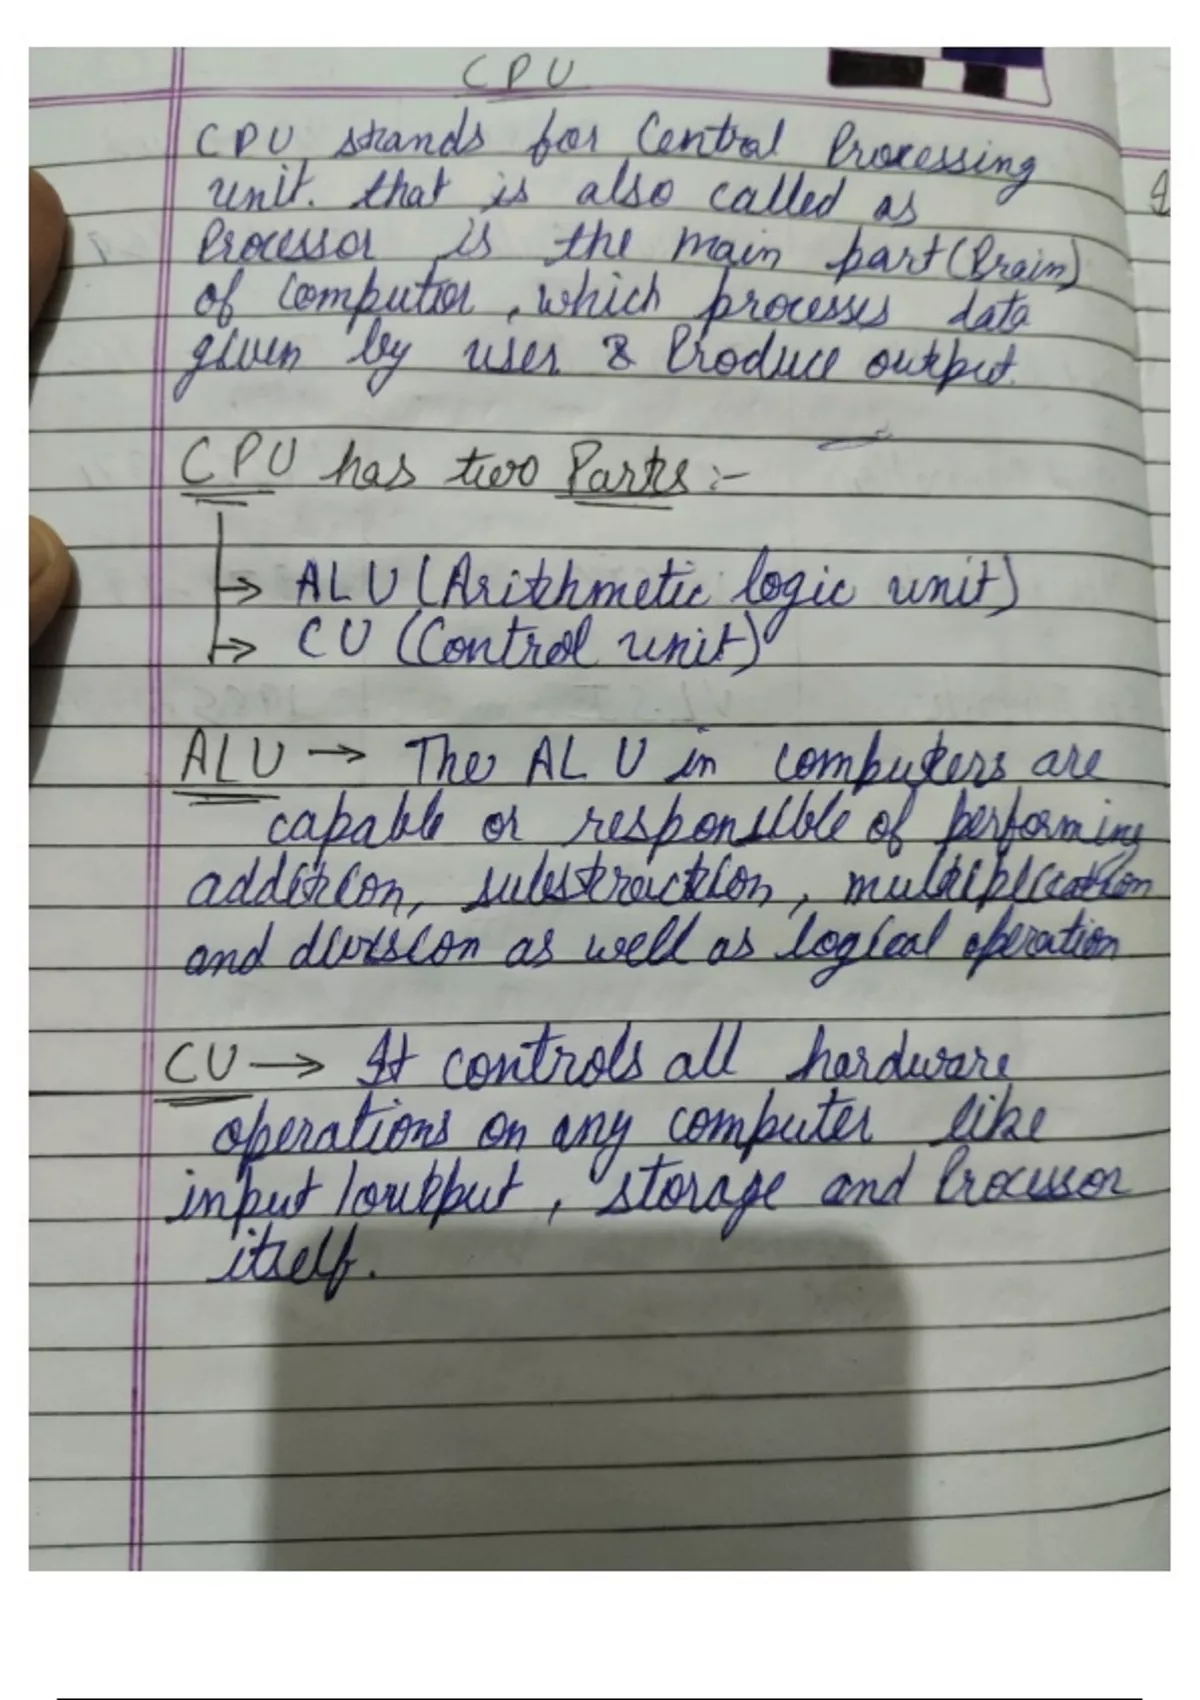 CPU
CPU stands for Central Processing
unit. that is also called as
Processor is the main part (Brain)
of computer, which processes data
given by user & Produce output.
CPU has two Parts :-
→ ALU (Arithmetic logic unit)
→ CU (Control unit)
ALU → The ALU in computers are
capable or responsible of performing
addition, substraction, multiplication
and division as well as logical operation
CU → It controls all hardware
operations on any computer like
input/output, storage and Processor
itself.